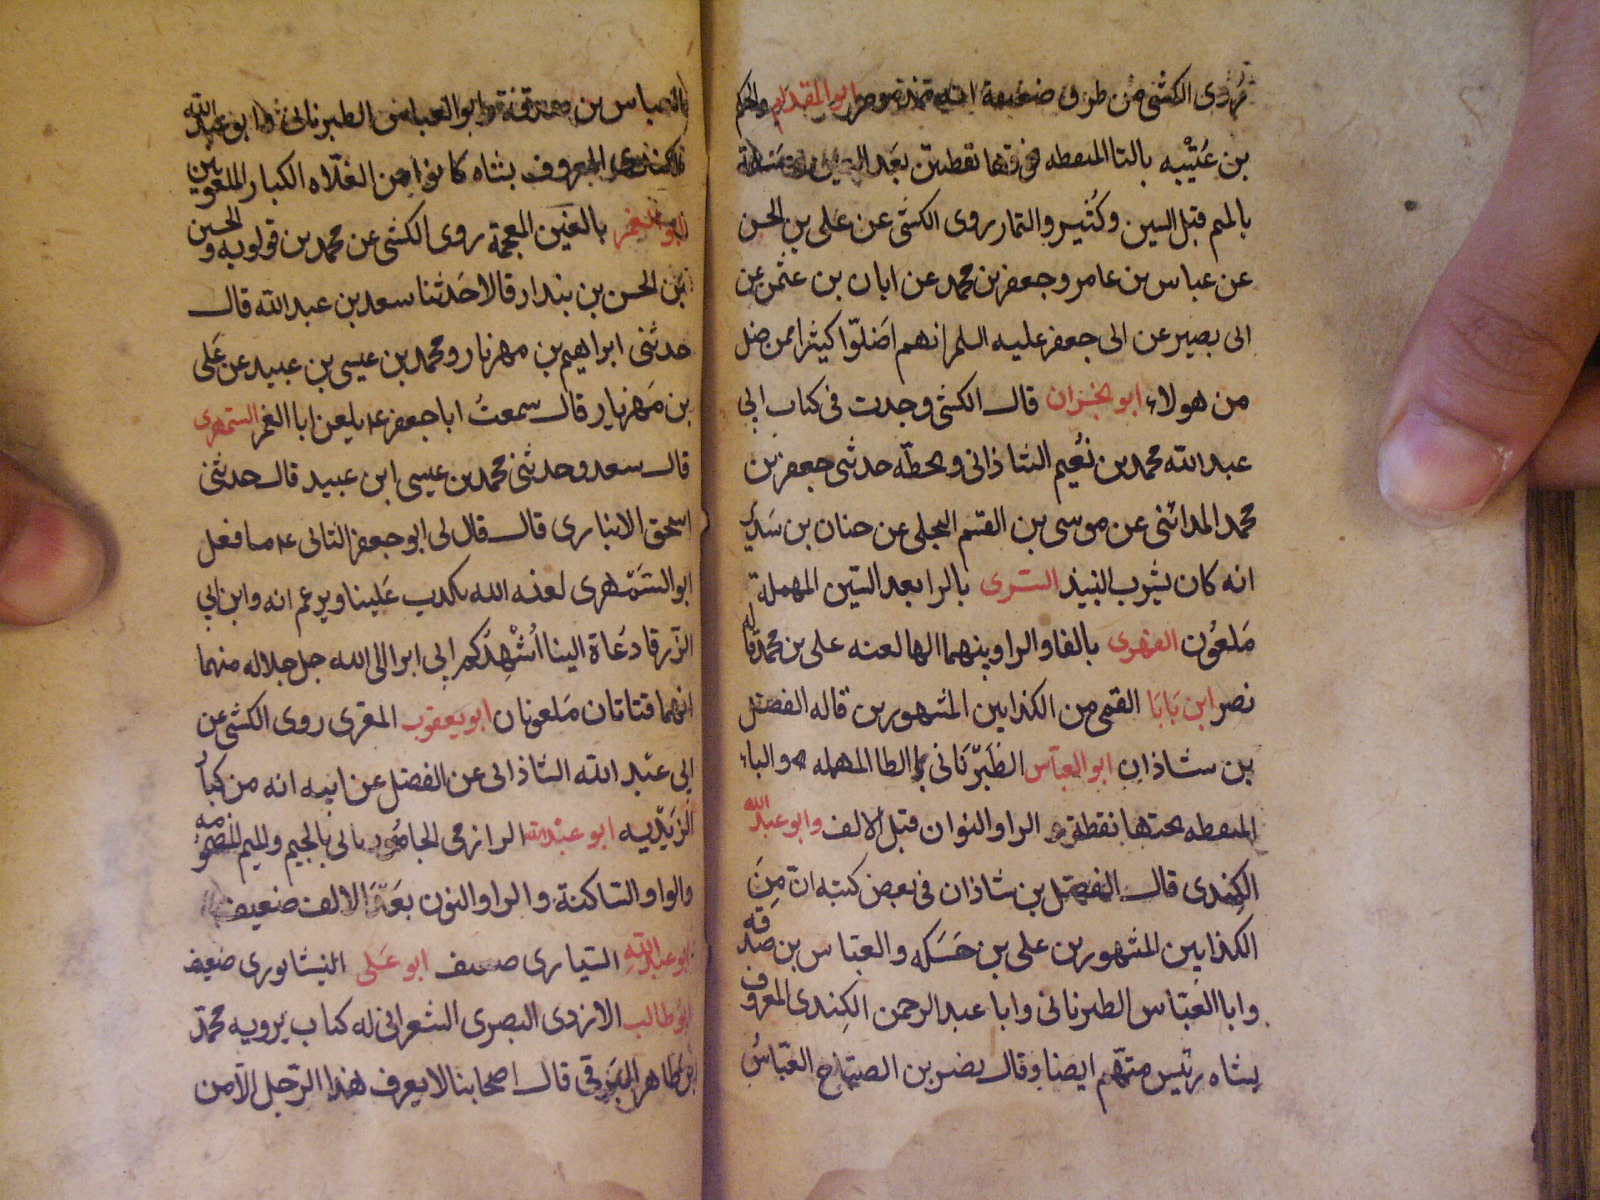 روى الكشى من طرق ضعيفة انه ابو المقدام والحكم
بن عُتَيْبه بالتا المنقطه فوقها نقطتين بَعد
بالميم قبل السين وكثير والتمار روى الكشى عن على بن الحسن
عن عباس بن عامر وجعفر بن محمد عن ابان بن عثمن عن
ابى بصير عن ابى جعفر عليه السلم انهم اَضَلّوا كثيرا ممن ضل
من هولاء ابو قال الكشى وجدت فى كتاب ابى
عبد الله محمد بن نُعَيم الشاذانى وبخطّه حدثنى جعفر بن
محمد المدائنى عن موسى بن القسم البجلى عن حنان بن سَدير
انه كان يشرب النبيذ السرى بالرا بعد السين المهملة
مَلعُون الفهرى بالفا والرا وبينهما الها لعنه على بن محمد قاله
نصر ابن بَابَا القمى من الكذابين المشهورين قاله الفضل
بن شاذان ابو العبّاس الطَبَرْنَانى بالطا المهمله والباء
المنقطه تحتها نقطة و الرا والنوان قبل الالف وابو عبد الله
الكِندى قال الفضل بن شاذان فى بعض كتبه انّ مِنَ
الكذابين المشهورين على بن حَسَكه والعبّاس بن صَدَقه
وابا العَبّاس الطبرنانى وابا عبد الرحمن الكِندى المعروف
بشاه رئيس منهم ايضا وقال نصر بن الصبّاح العَبّاسُ
بن صدقة وابو العباس الطبرنانى وابو عبد الله
الكندى المعروف بشاه كانوا من الغلاه الكبار الملعونين
ابو الغمر بالغَين المعجمة روى الكشى عن محمد بن قولويه والحسين
بن الحسن بن بندار قالا حَدثنا سعد بن عبد الله قال
حدثنى ابراهيم بن مهزيار ومحمد بن عيسى بن عبيد عن عَلى
بن مَهزيار قال سمعتُ ابا جعفر عه يلعن ابا الغمر السمهرى
قال سعد وحدثنى محمد بن عيسى ابن عبيد قال حدثنى
اسحق الانبارى قال قال لى ابو جعفر الثانى عه ما فعل
ابو السَمْهرى لعنه الله يكذب عَلينا ويزعم انه وابن ابى
الزّرقا دُعَاة الينا اُشْهِدُكم اِنى ابرا الى الله جل جلاله منهما
انهما فتانان مَلعونان ابو يعقوب المقرى روى الكشى عن
ابى عَبْد الله الشاذانى عن الفضل عن ابيه انه من كبار
الزَيْدِيّه ابو عبد الله الرازى الجامُورانى بالجيم والميم المضمومه
والواو الساكنة والرا والنون بَعْدَ الالف ضعيف
ابو عبد اللّهِ السَيارى ضعيف ابو عَلى النيشابورى ضعيف
ابو طالب الازدى البصرى الشعرانى له كتاب يَرويه محمد
بن طاهر البرقى قال اصحابنا لا يعرف هذا الرّجل الّا من